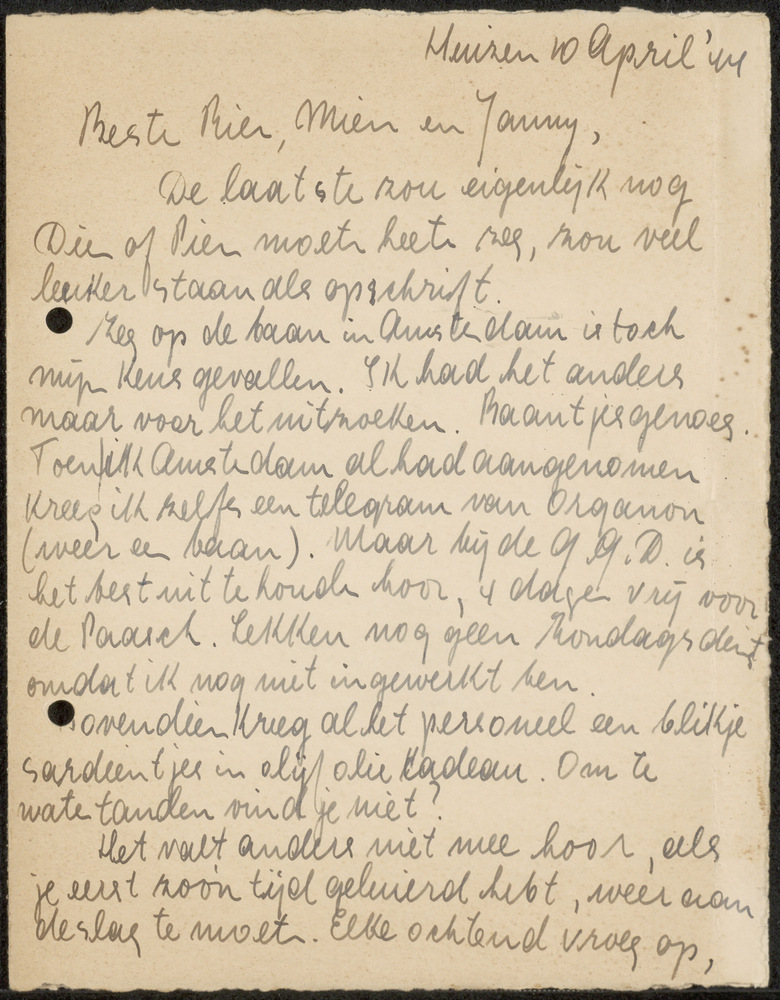 Huizen 10 April '44
Beste Rier, Mien en Janny,
De laatste zou eigenlijk nog
Dien of Pien moeten heeten zeg, zou veel
leuker staan als opschrift.
Zeg op de baan in Amsterdam is toch
mijn keus gevallen. Ik had het anders
maar voor het uitzoeken. Baantjes genoeg.
Toen ik Amsterdam al had aangenomen
kreeg ik zelfs een telegram van Organon
(weer een baan). Maar bij de G.G.D. is
het best uit te houden hoor, 4 dagen vrij voor
de Paasch. Lekker nog geen Zondagsdienst
omdat ik nog niet ingewerkt ben.
Bovendien kreeg al het personeel een blikje
sardientjes in olijfolie kadeau. Om te
watertanden vind je niet?
Het valt anders niet mee hoor, als
je eerst zoo'n tijd geluierd hebt, weer aan
de slag te moeten. Elke ochtend vroeg op,